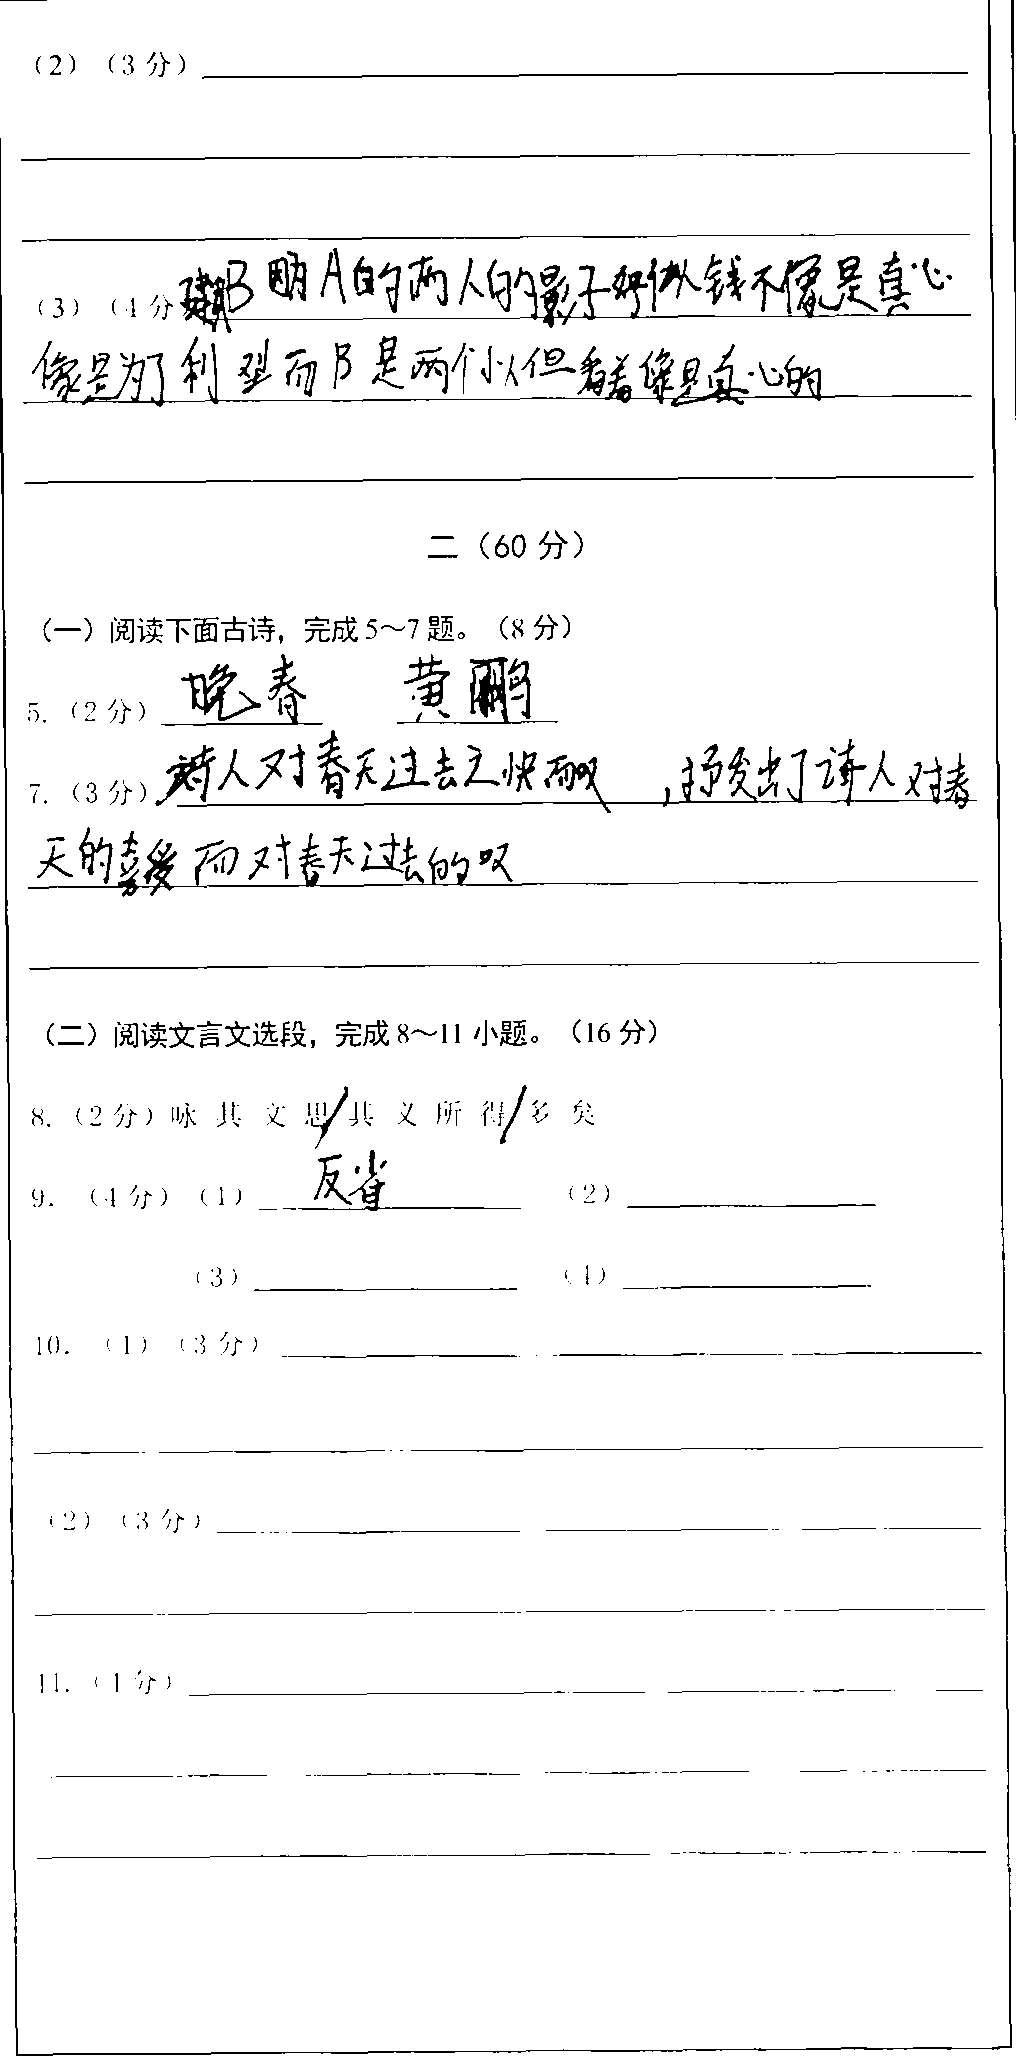 （2）（3分）
（3）（4分 B 因为 A的两人的影子好似钱不像是真心
像是为了利 而B是两个小人但看着像是真心的
二（60分）
（一）阅读下面古诗，完成5～7题。（8分）
5.（2分） 晚春 黄鹂
7.（3分） 诗人对春天过去之快而叹 ，抒发出了诗人对春
天的喜爱而对春天过去的叹
（二）阅读文言文选段，完成8～11小题。（16分）
8.（2分）咏 其 文 思/其 义 所 得/多 矣
9.（4分）（1） 反省 （2）
（3） （4）
10.（1）（3分）
（2）（3分）
11.（4分）